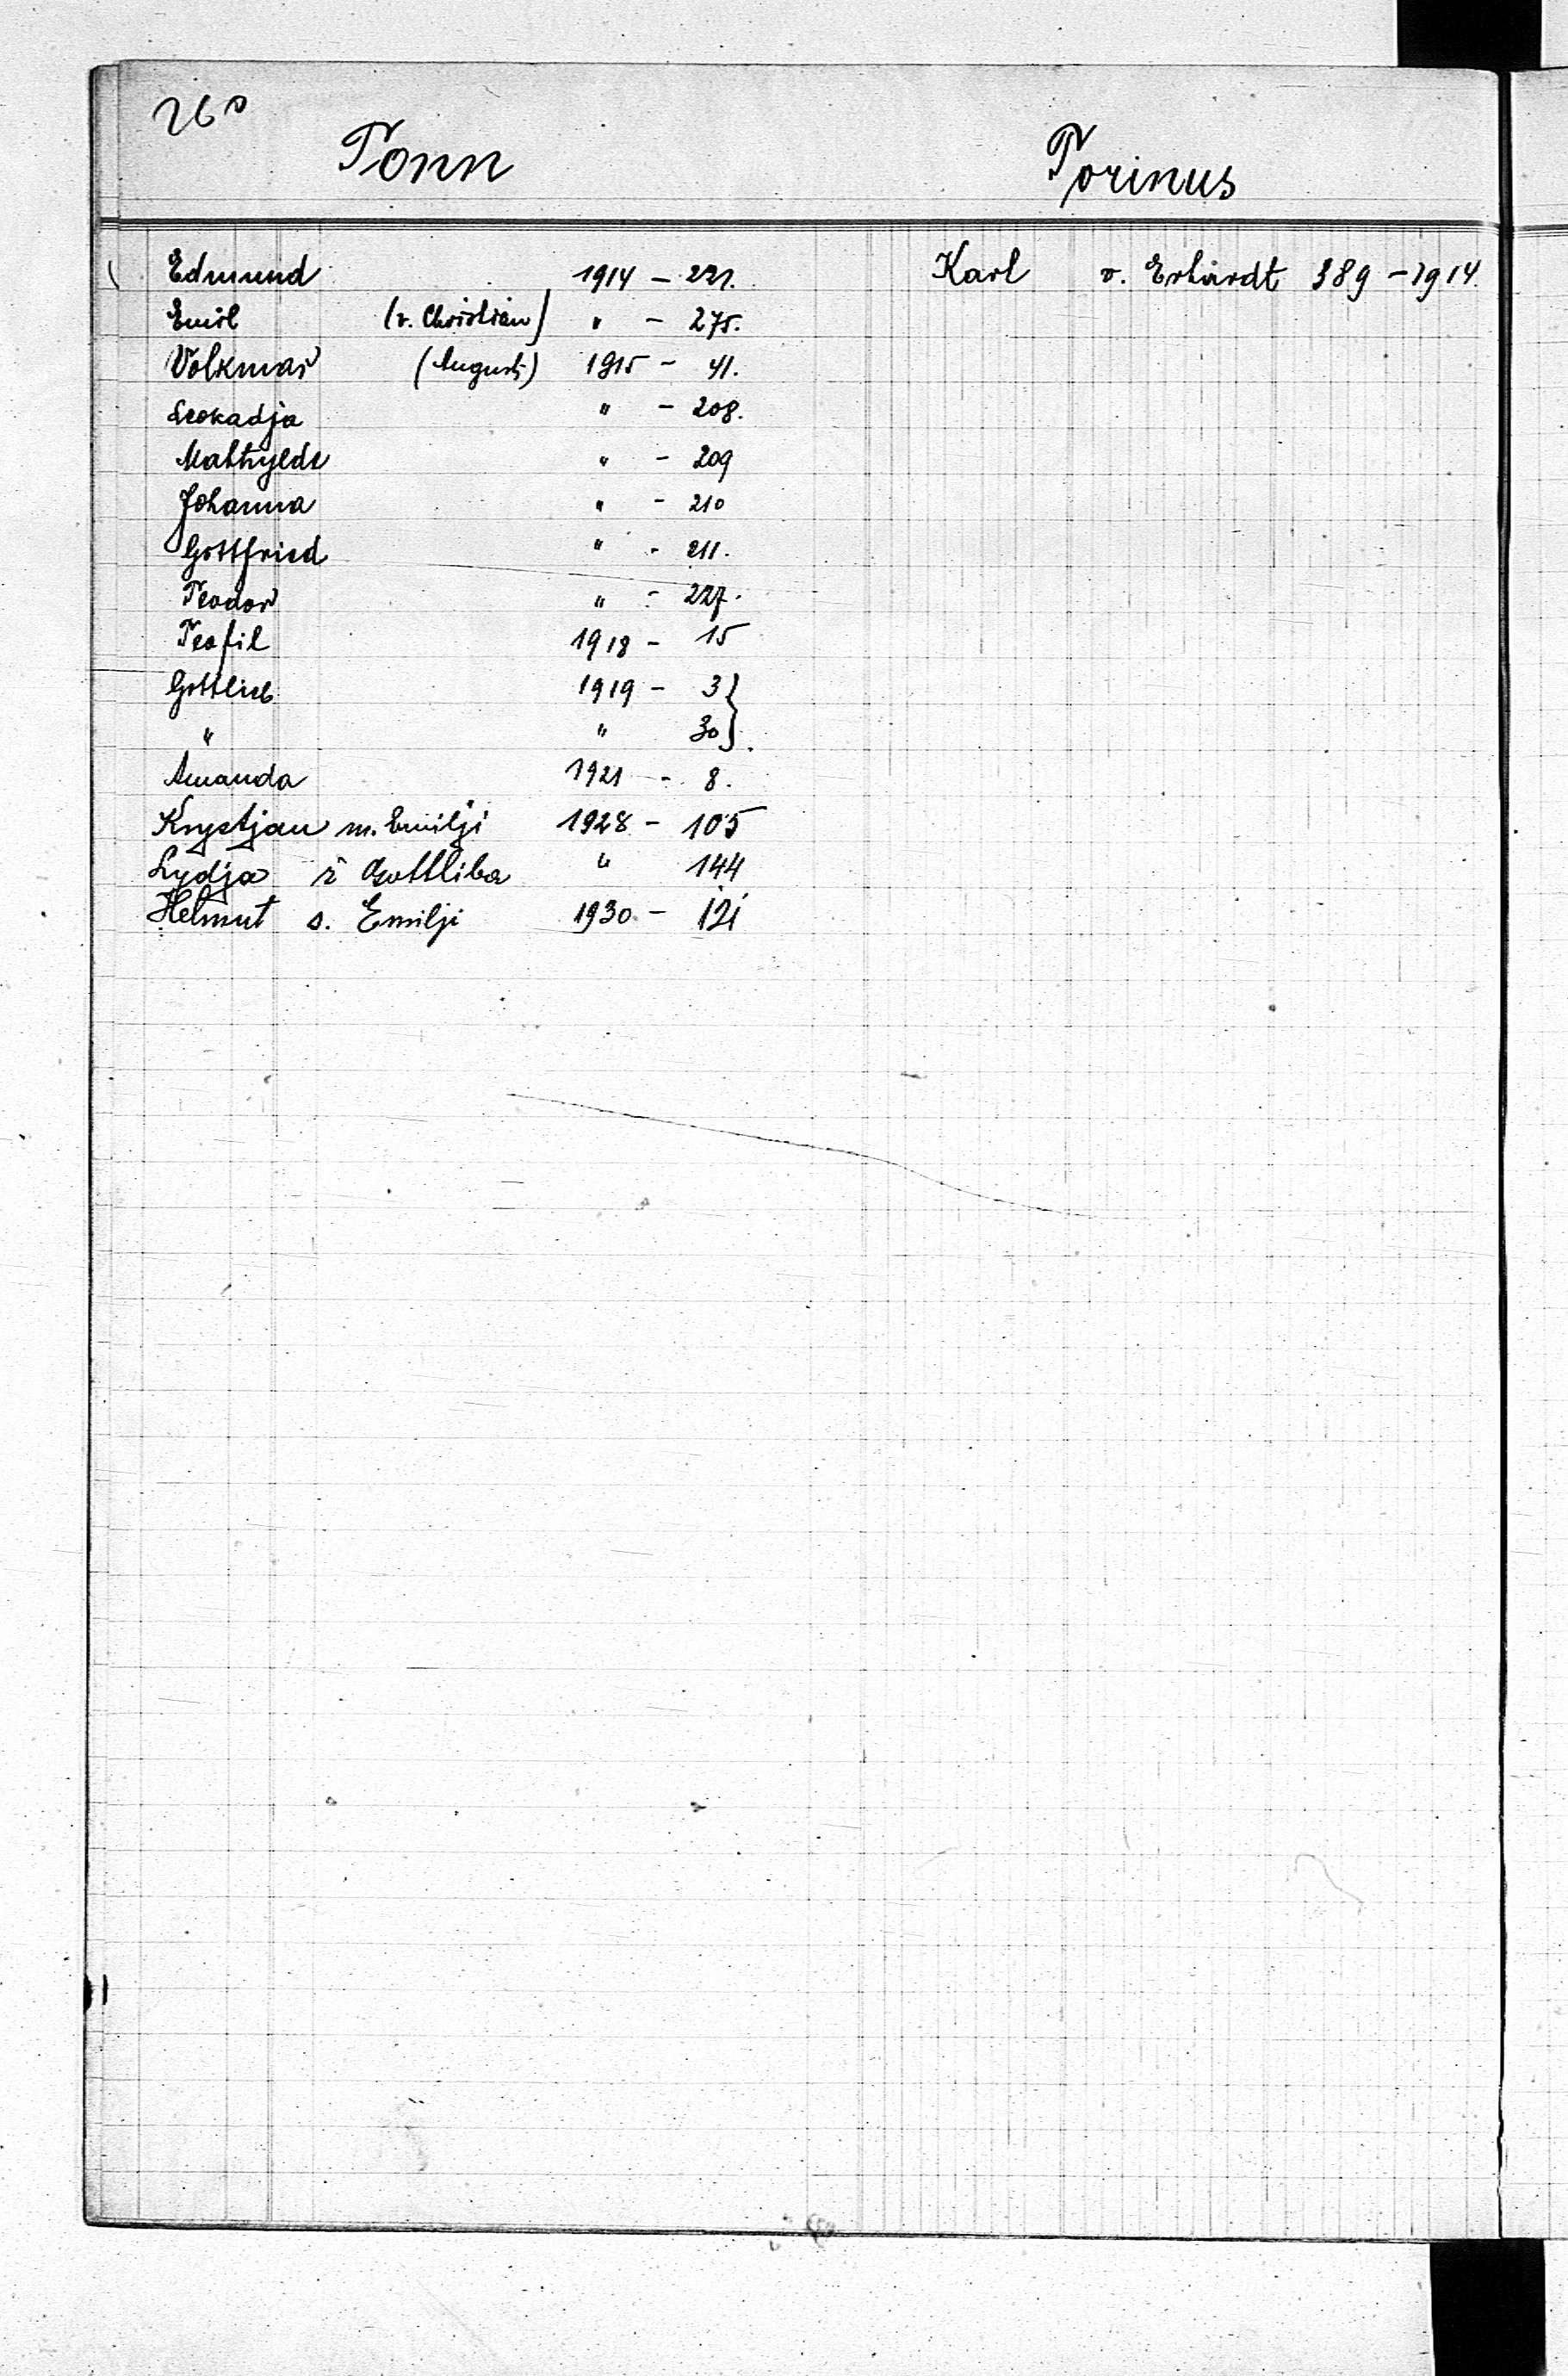 260
Tonn
Edmund 1914 - 221.
Emil (v. Christian) " - 275.
Volkmar (August) 1915 - 41.
Leokadja " - 208.
Mathylde " - 209
Johanna " - 210
Gottfried " - 211.
Teodor " - 227.
Teofil 1918 - 15
Gottlieb 1919 - 3 }
" " 30 }
Amanda 1921 - 8.
Krystjan m. Emilji 1928 - 105
Lydja Gottliba " 144
Helmut s. Emilji 1930 - 121
Torinus
Karl v. Erhardt 389 - 1914.